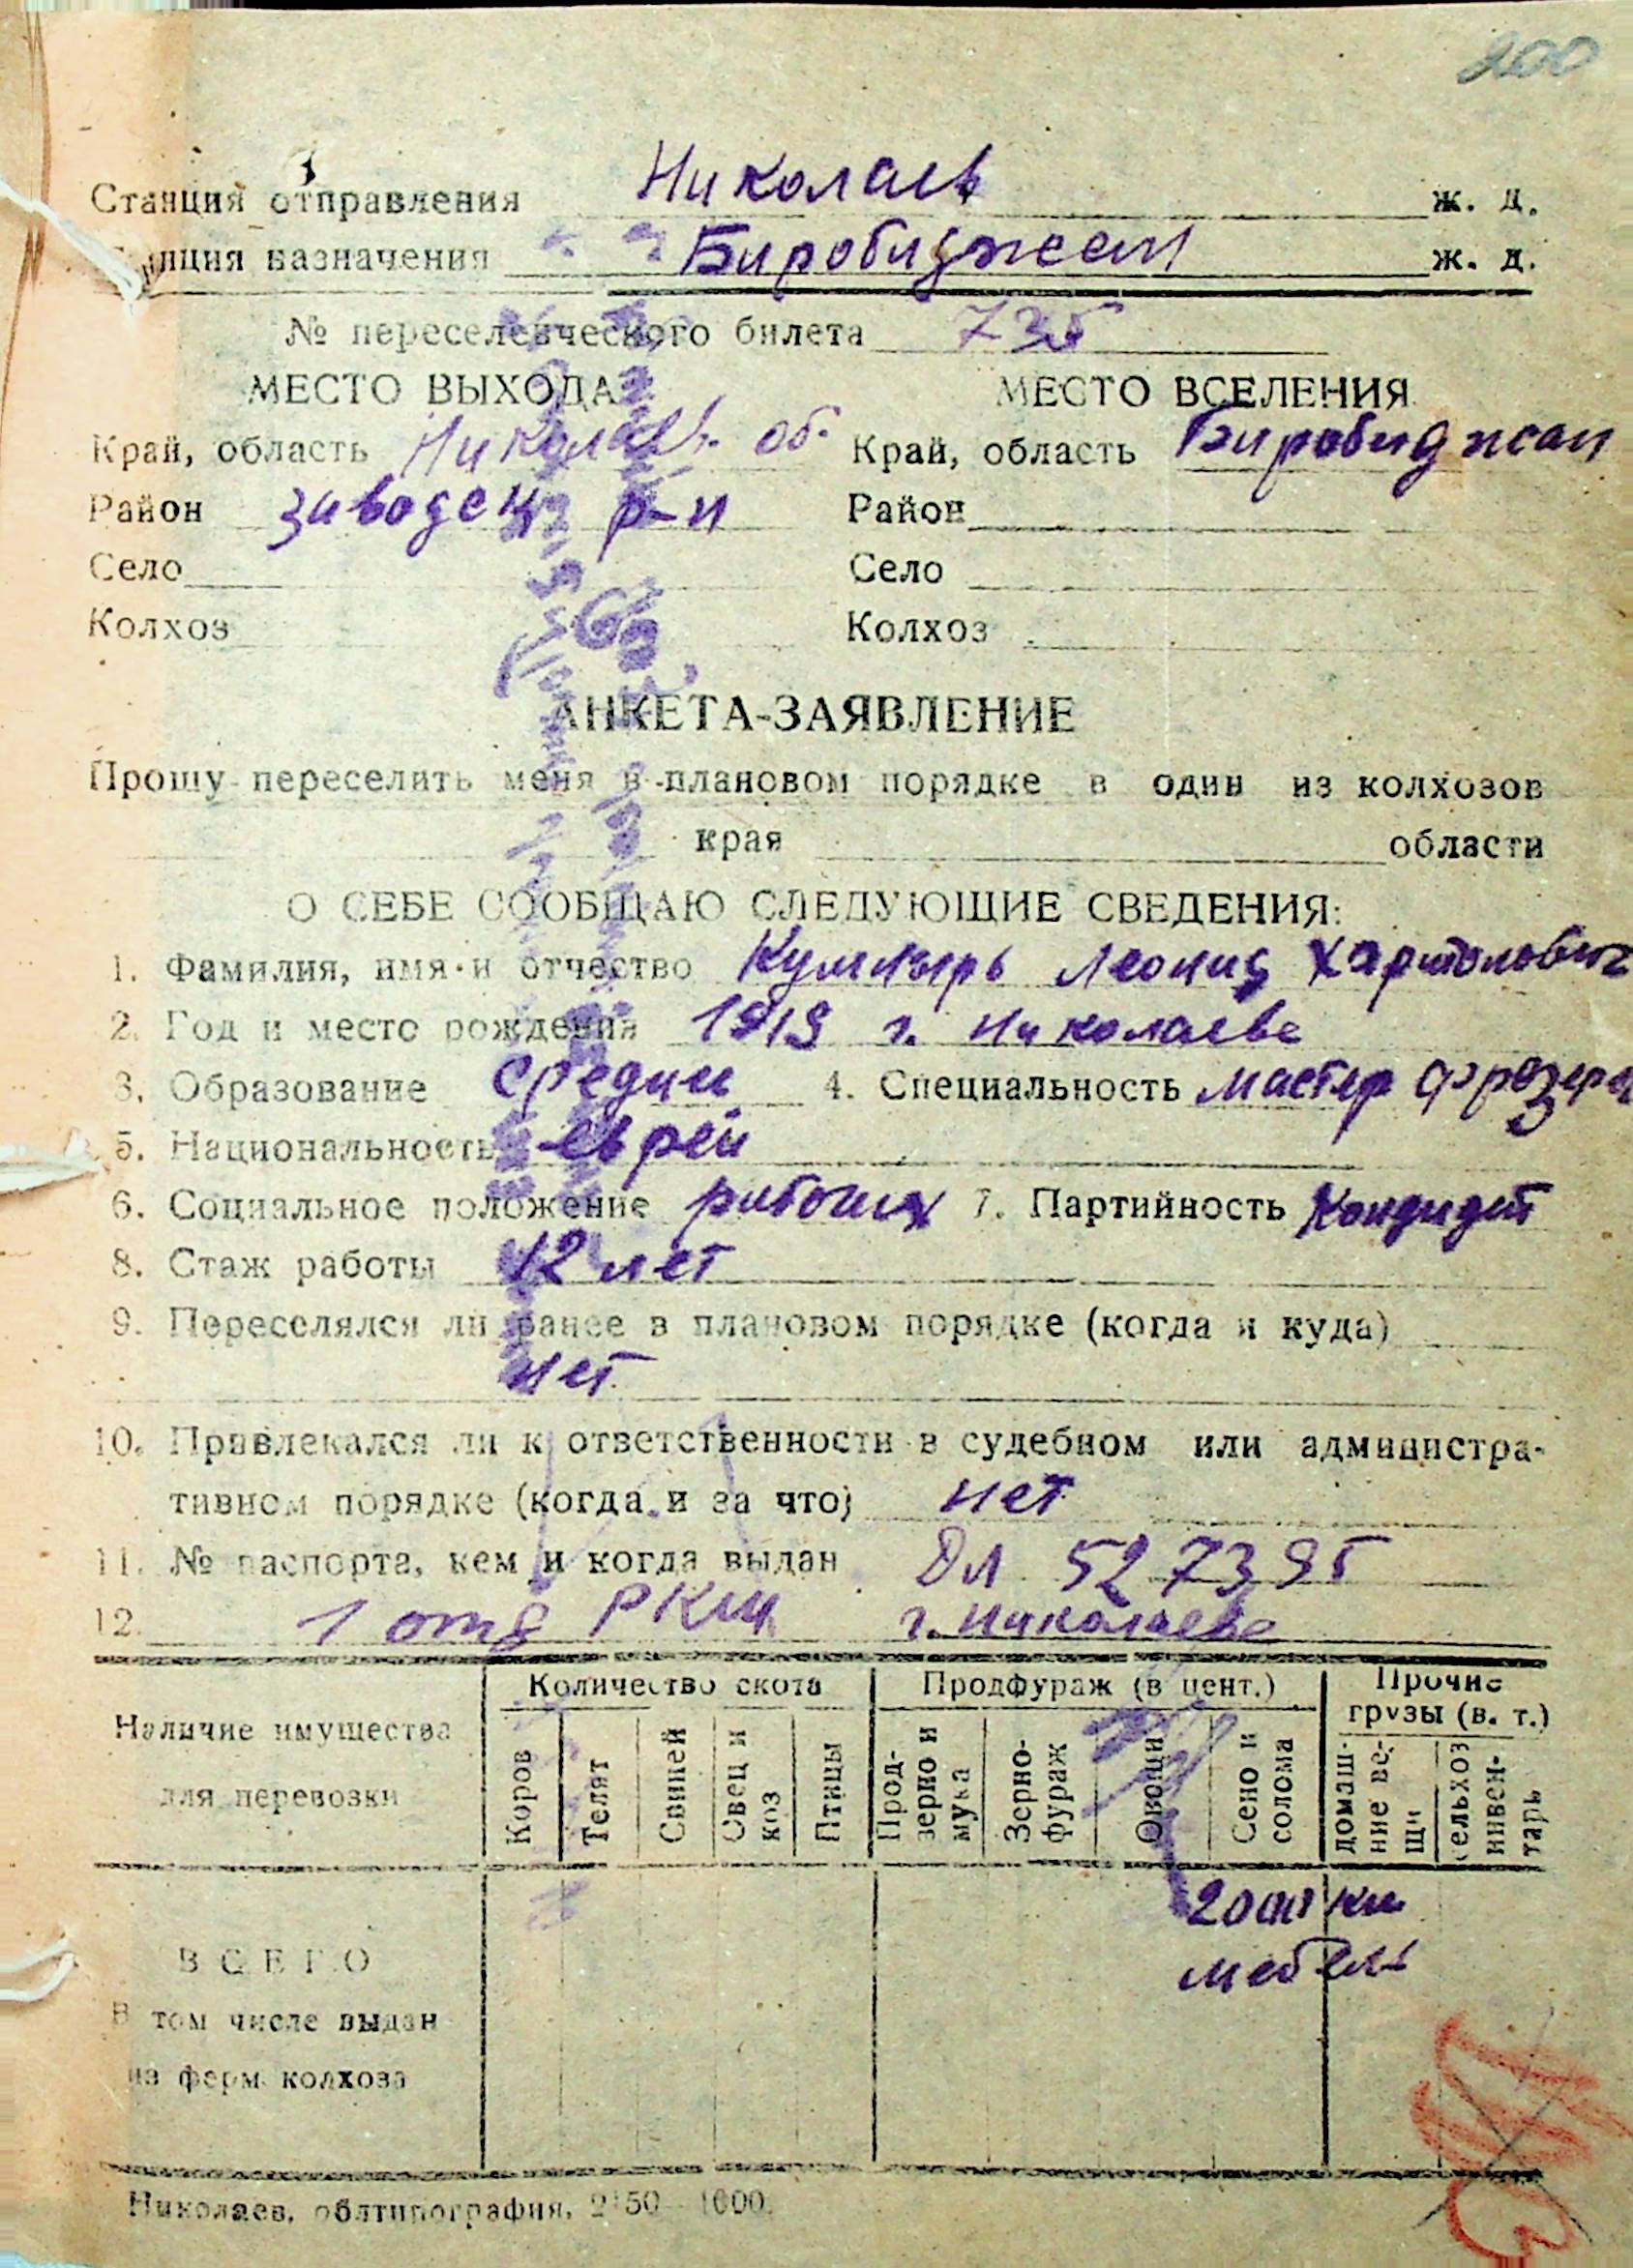 200
Станция отправления Николаев ж. д.
нция назначения Биробиджан ж. д.
№ переселенческого билета 735
МЕСТО ВЫХОДА МЕСТО ВСЕЛЕНИЯ
Край, область Николаев. об. Край, область Биробиджан
Район Заводск р-н Район
Село Село
Колхоз Колхоз
АНКЕТА-ЗАЯВЛЕНИЕ
Прошу переселить меня в плановом порядке в один из колхозов
края области
О СЕБЕ СООБЩАЮ СЛЕДУЮЩИЕ СВЕДЕНИЯ:
1. Фамилия, имя и отчество Леонид Харитонович
2. Год и место рождения 1919 г. Николаеве
3. Образование средние 4. Специальность мастер фрезера
5. Национальность еврей
6. Социальное положение рабочих 7. Партийность Кандидат
8. Стаж работы 12 лет
9. Переселялся ли ранее в плановом порядке (когда и куда)
нет
10. Привлекался ли к ответственности в судебном или администра-
тивном порядке (когда и за что) нет
11. № паспорта, кем и когда выдан 527395
12. 1 отд РКМ г. Николаеве
Количество скота Продфураж (в цент.) Прочие грузы (в. т.)
Наличие имущества для перевозки
Коров Телят Свиней Овец и коз Птицы Прод-зерно и мука Зерно-фураж Овощи Сено и солома домаш-ние ве-щи сельхоз инвен-тарь
2000 кг
мебель
ВСЕГО
В том числе выдан
из ферм колхоза
Николаев, облтипография, 2150—1000.